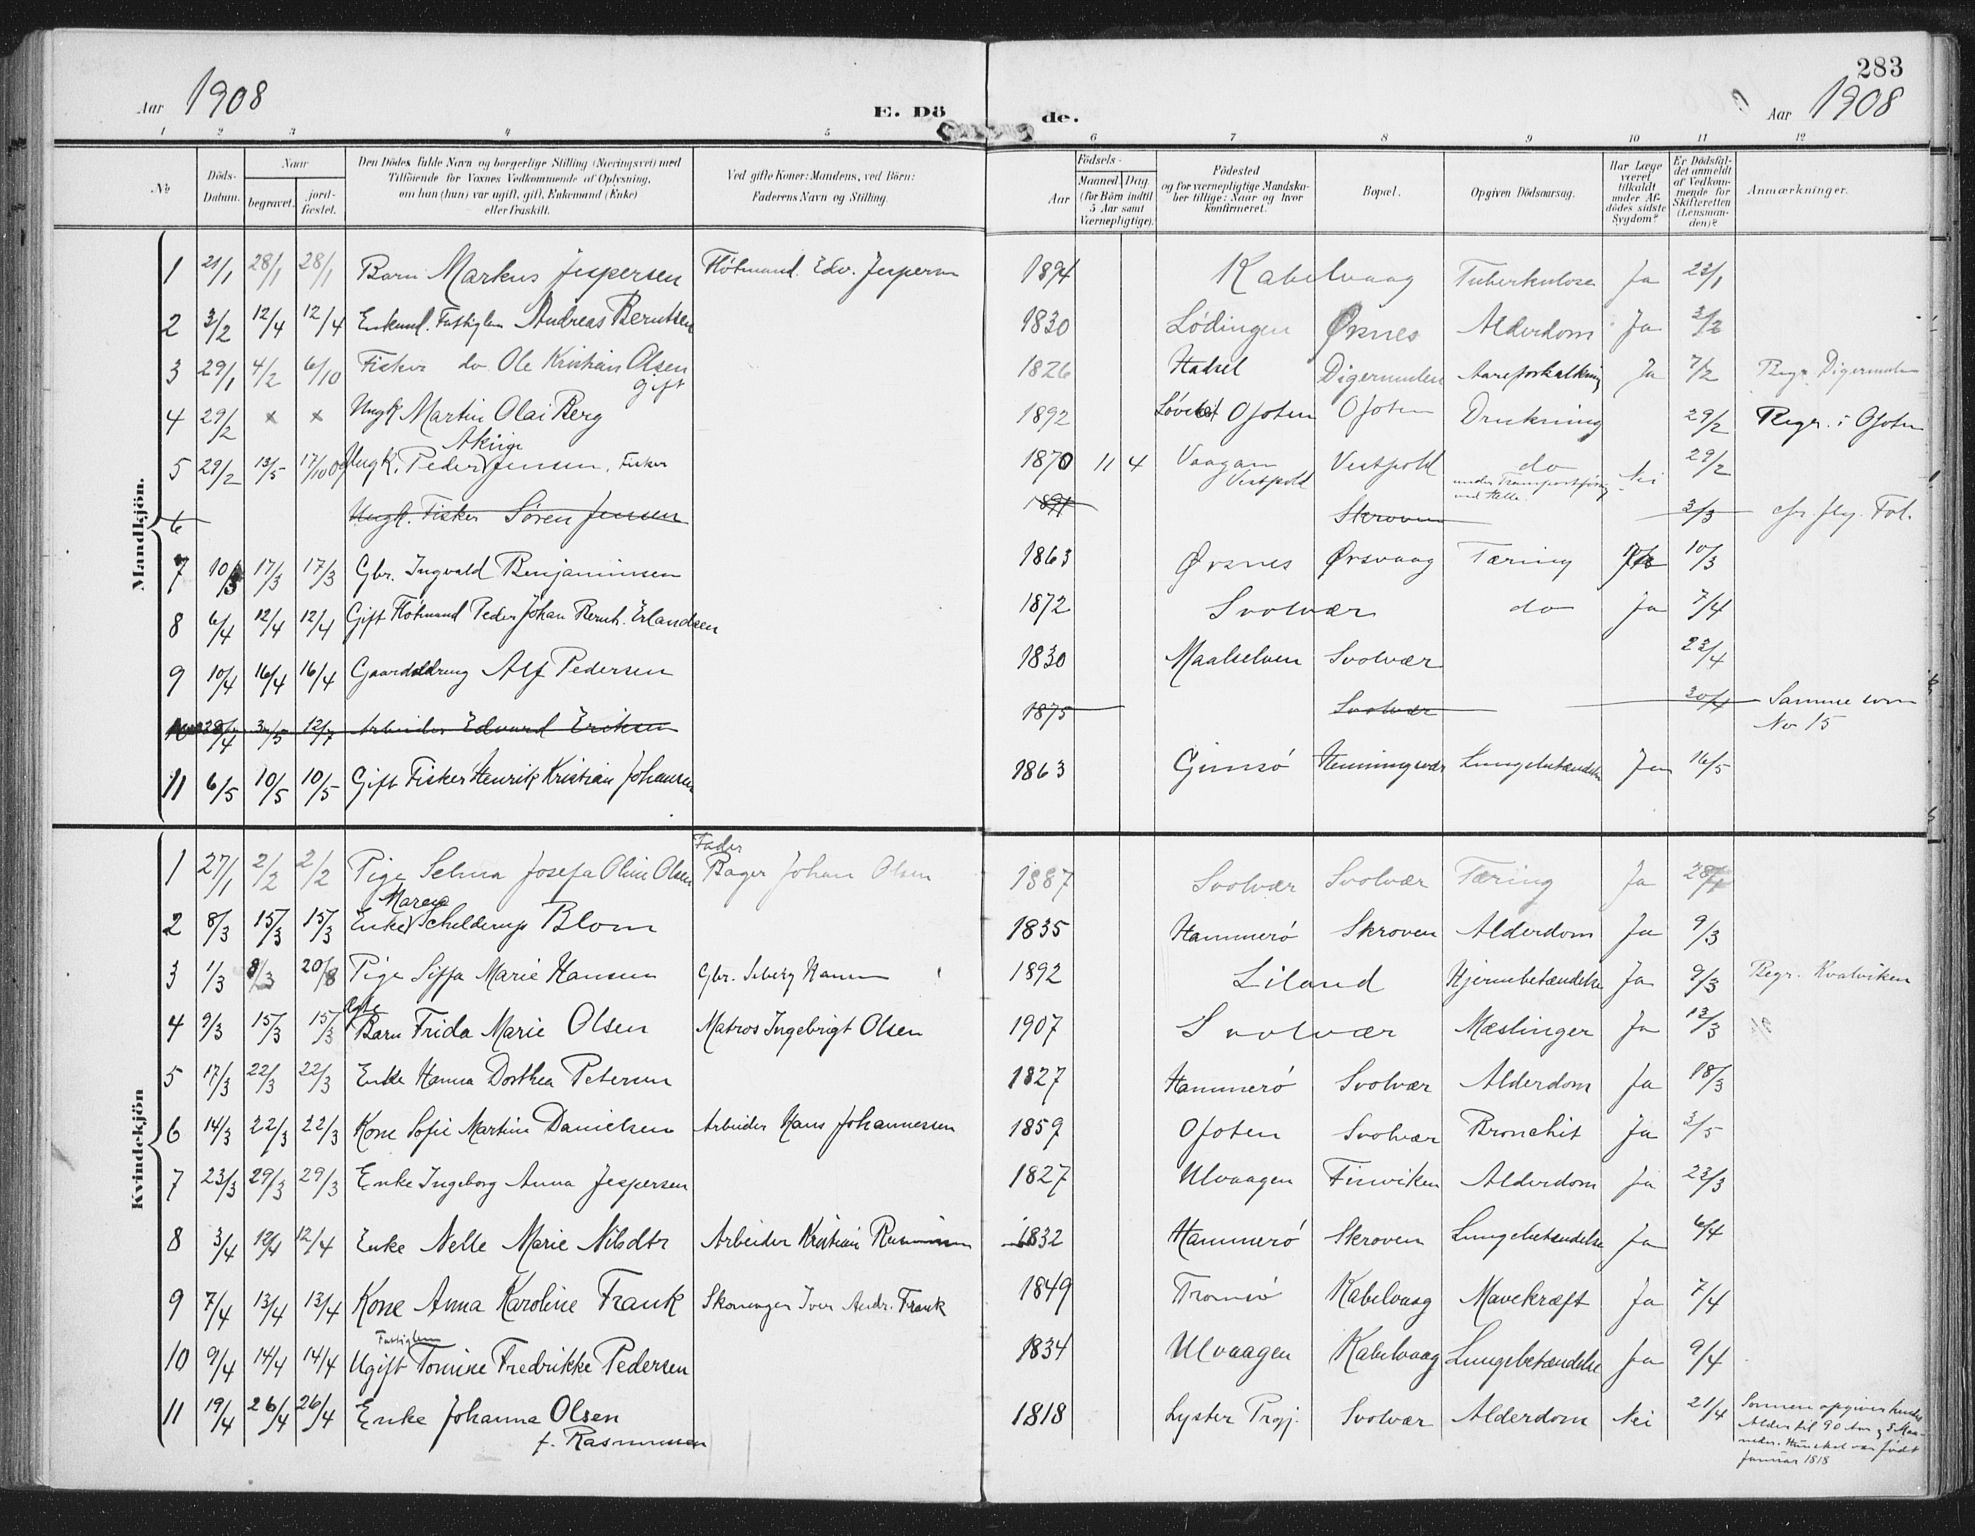 283
Aar 1908
E. Dö
de.
Aar 1908
1 2 3 4 5 6 7 8 9 10 11 12
No
Döds-Datum.
Naar
begravet.
jord-fæstet.
Den Dödes fulde Navn og borgerlige Stilling (Næringsvei) med
Tilföiende for Voxnes Vedkommende af Oplysning,
om han (hun) var ugift, gift, Enkemand (Enke)
eller fraskilt.
Ved gifte Koner: Mandens, ved Börn:
Faderens Navn og Stilling.
Födsels-
Aar
Maaned Dag
(for Börn indtil
5 Aar samt
Værnepligtige).
Födested
og for værnepligtige Mandska-
ber tillige: Naar og hvor
konfirmeret.
Bopæl.
Opgiven Dödsaarsag.
Har Læge
været
tilkaldt
under Af-
dödes sidste
Sygdom?
Er Dödsfal-
det anmeldt
af Vedkom-
mende for
Skifteretten
(Lensman-
den)?
Anmærkninger.
Mandkjön.
1 21/1 28/1 28/1 Barn Markus Jespersen Fløtmand Edv. Jespersen 1894 Kabelvaag Tuberkulose Ja 22/1
2 3/2 12/4 12/4 Enkemd. Fattiglem Andreas Berntsen 1830 Lødingen Ørsnes Alderdom Ja 3/2
3 29/1 4/2 6/10 Fisker do Ole Kristian Olsen gift 1826 Hadsel Digermulen Aareforkalkning Ja 7/2 Begr. Digermulen
4 29/2 x x Ungk Martin Olai Berg 1892 Ofoten Ofoten Drukning 29/2 Begr. i Ofoten
5 29/2 13/5 17/10 09 Ungk. Peder Jensen, Fisker 1870 11 4 Vaagan Vestpold Vestpold do Nei 29/2
6 Ungk. Fisker Søren Jensen Skroven 3/3 cfr. flg. Fol.
7 10/3 17/3 17/3 Gbr. Ingvald Benjaminsen 1863 Ørsnes Ørsvaag Tæring 10/3
8 6/4 12/4 12/4 Gift Fløtmand Peder Johan Bernh. Erlandsen 1872 Svolvær do Ja 7/4
9 10/4 16/4 16/4 Alf Pedersen 1830 Maalselven Svolvær 23/4
28/4 30/5 12/7 Arbeider Edvard Eriksen 1875 Svolvær 30/4 Samme som No 15
11 6/5 10/5 10/5 Gift Fisker Henrik Kristian Johansen 1863 Gimsø Henningsvær Lungebetændelse Ja 16/5
Kvindekjön
1 27/1 2/2 2/2 Pige Selma Josefa Oline Olsen Fader Bager Johan Olsen 1887 Svolvær Svolvær Tæring Ja
2 8/3 15/3 15/3 Enke Maren Schelderup Blom 1835 Hammerø Skroven Alderdom Ja 9/3
3 1/3 8/3 20/8 Pige Siffa Marie Hansen Gbr. Hansen 1892 Liland Hjernebetændelse Ja 9/3 Begr. Kvalviken
4 9/3 15/3 15/3 Barn Frida Marie Olsen Matros Ingebrigt Olsen 1907 Svolvær Mæslinger Ja 13/3
5 17/3 22/3 22/3 Enke Hanna Dorthea Petersen 1827 Hammerø Svolvær Alderdom Ja 18/3
6 14/3 22/3 22/3 Kone Sofie Martine Danielsen Arbeider Hans Johannessen 1859 Ofoten Svolvær Bronchit Ja 3/5
7 23/3 29/3 29/3 Enke Ingeborg Anna Jespersen 1827 Ulvaagen Finviken Alderdom Ja 23/3
8 3/4 12/4 12/4 Enke Nelle Marie Nilsdtr Arbeider Kristian 1832 Hammerø Skroven Lungebetændelse Ja 6/4
9 7/4 13/4 13/4 Kone Anna Karoline Frank Iver Andr. Frank 1849 Tromsø Kabelvaag Mavekræft Ja 7/4
10 9/4 14/4 14/4 Ugift Fattiglem Tomine Fredrikke Pedersen 1834 Ulvaagen Kabelvaag Lungebetændelse Ja 9/4
11 19/4 26/4 26/4 Enke Johanna Olsen f. Rasmussen 1818 Lyster Svolvær Alderdom Nei 21/4 Sønnen opgiver hendes
Alder til 90 Aar og 3 Maa-
neder. Hun skal være født
Januar 1818